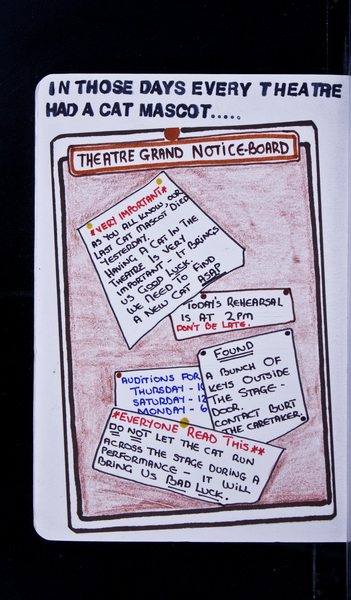 IN THOSE DAYS EVERY THEATRE
HAD A CAT MASCOT.....
THEATRE GRAND NOTICE-BOARD
*VERY IMPORTANT*
AS YOU ALL KNOW, OUR
LAST CAT MASCOT DIED
YESTERDAY.
HAVING A CAT IN THE
THEATRE IS VERY
IMPORTANT - IT BRINGS
US GOOD LUCK.
WE NEED TO FIND
A NEW CAT ASAP
TODAY'S REHEARSAL
IS AT 2PM
DON'T BE LATE.
FOUND
A BUNCH OF
KEYS OUTSIDE
THE STAGE-
DOOR.
CONTACT BURT
THE CARETAKER.
AUDITIONS FOR
THURSDAY - 10
SATURDAY - 12
MONDAY - 6
*EVERYONE READ THIS**
DO NOT LET THE CAT RUN
ACROSS THE STAGE DURING A
PERFORMANCE - IT WILL
BRING US BAD LUCK.